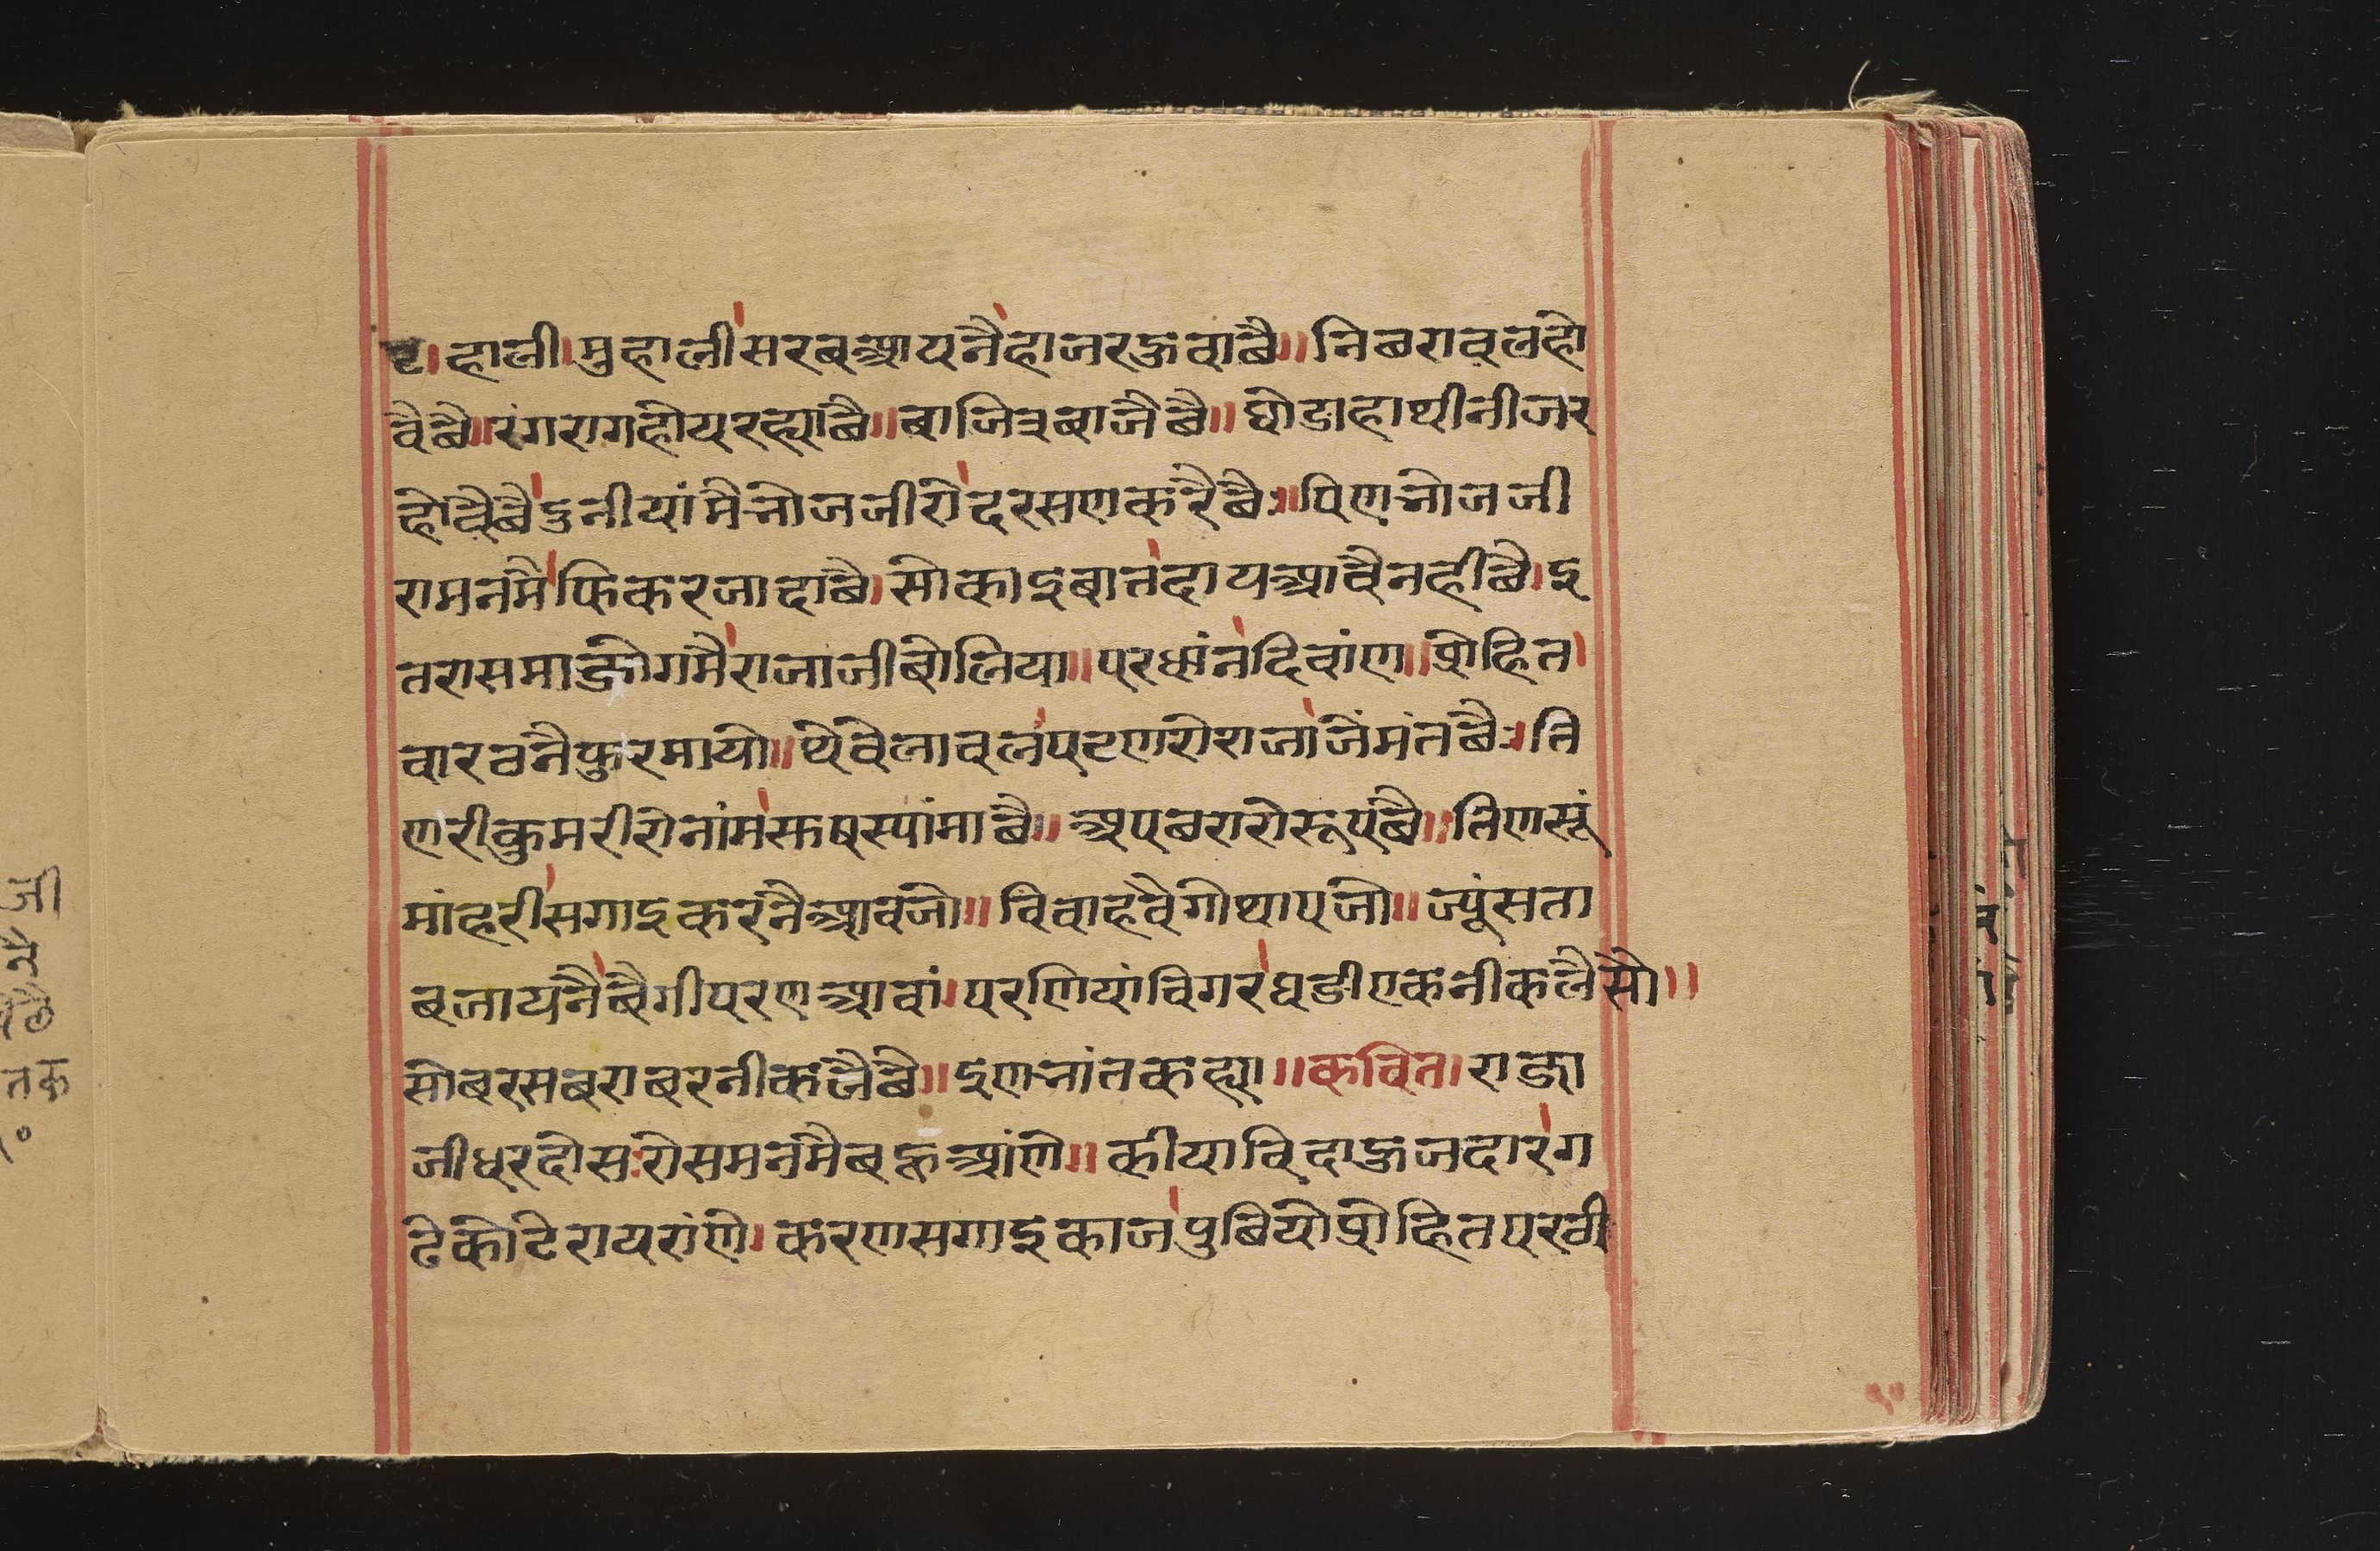 ट।हाली।मुहालीसरबआयनैहाजरऊवाछै॥निछरावलहो
वैछै॥रंगरागहोयरह्याछै॥बाजित्रबाजैछै॥घोडाहाथीनीजर
होवैछैदुनीयांमैभोजजीरोदरसणकरैछैः॥पिणभोजजी
रामनमैफिकरजादाछै।सोकाइबातदायआवैनहीछै।इ
तरासमाजोगमैराजाजीबोलिया॥परधांनदिवांण॥प्रोहित।
वारठनैफुरमायो॥थेवेलावलपटणरोराजाजैमंतछैः।ति
णरीकुमरीरोनांम
अपछरारोरूपछै॥तिणसूं
मांहरीसगाइकरनैआवजो॥विवाहवेगोथापजो॥ज्यूंसता
बजायनैबैगीपरणआवां।परणियांविगरघडीएकनीकलैसो॥
सोबरसबराबरनीकलैछै॥इणभांतकह्या॥कवित।राजा
जीधरदोसःरोसमनमैबऊआंणे॥कीयाविदाऊजदारग
ढेकोटेरायरांणे।करणसगाइकाजपुछियोप्रोहितपरठी
जी
तक